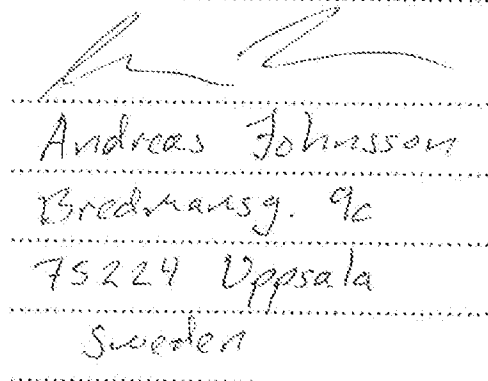 Andreas Johnsson
Bredmansg. 9c
75224 Uppsala
Sweden